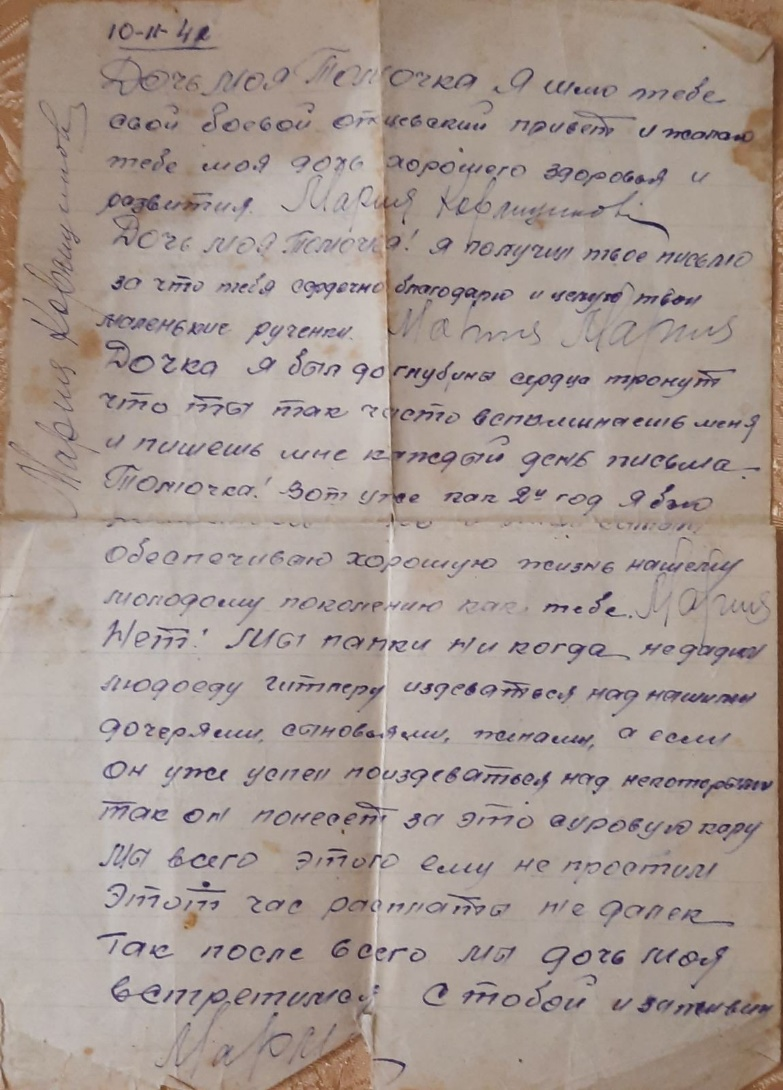 10-II-42
Дочь моя Томочка Я шлю тебе
свой боевой отцовский привет и желаю
тебе моя дочь хорошего здоровья и
развития. Мария
Дочь моя Томочка! Я получил твое письмо
за что тебя сердечно благодарю и целую твои
маленькие рученки. Мария Мария
Дочка Я был до глубины сердца тронут
что ты так часто вспоминаешь меня
и пишешь мне каждый день письма.
Томочка! Вот уже как 2й год Я бью
обеспечиваю хорошую жизнь нашему
молодому поколению как тебе. Мария
Нет! Мы папки ни когда не дадим
людоеду гитлеру издеваться над нашими
дочерями, сыновьями, женами, а если
он уже успел поиздеваться над некоторыми
так он понесет за это суровую кару
Мы всего этого ему не простим
Этот час расплаты не далек
Так после всего мы дочь моя
встретимся с тобой и заживем
Мари
Мария